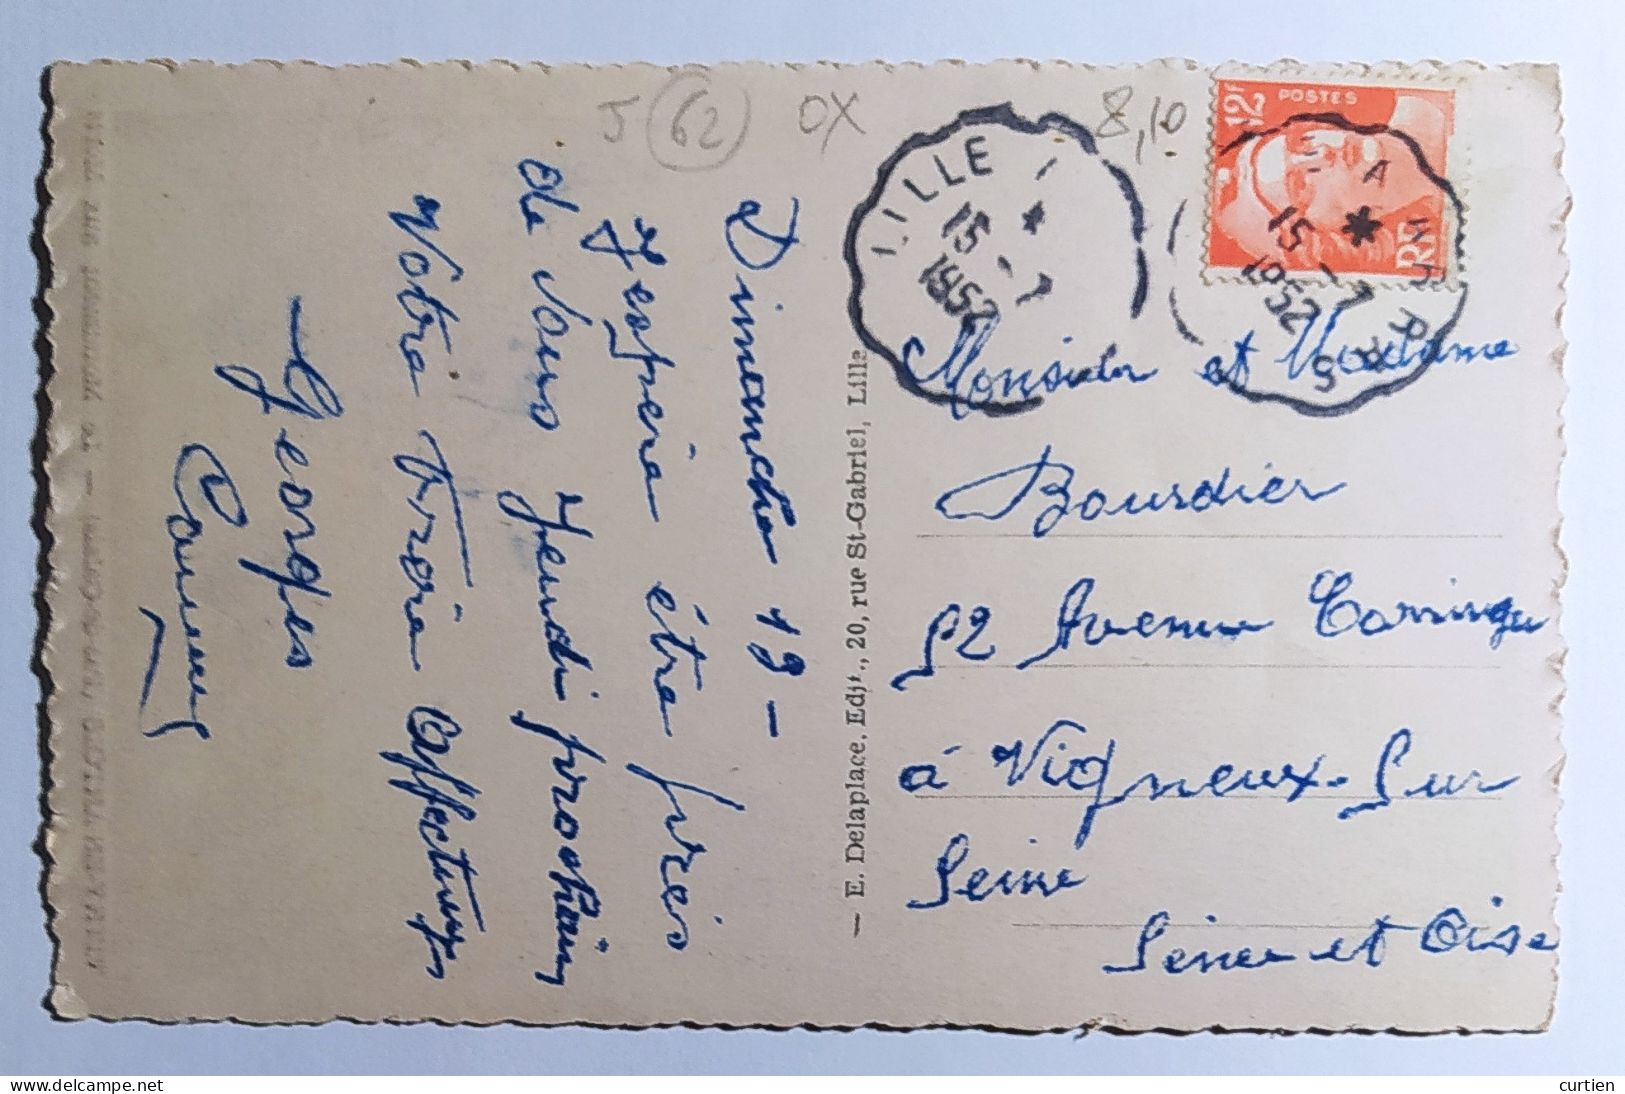 J 62 OX 8,10
12F POSTES
RF
LILLE
15 - 7
1952
LILLE A ARRAS
15 - 7
1952
Dimanche 13 -
J'espère être près
de Vous Jeudi prochain
Votre Frère Affectueux
Georges
Monsieur et Madame
Bourdier
52 Avenue
à Vigneux-Sur
Seine
Seine et Oise
— E. Delaplace, Edit., 20, rue St-Gabriel, Lille
curtien